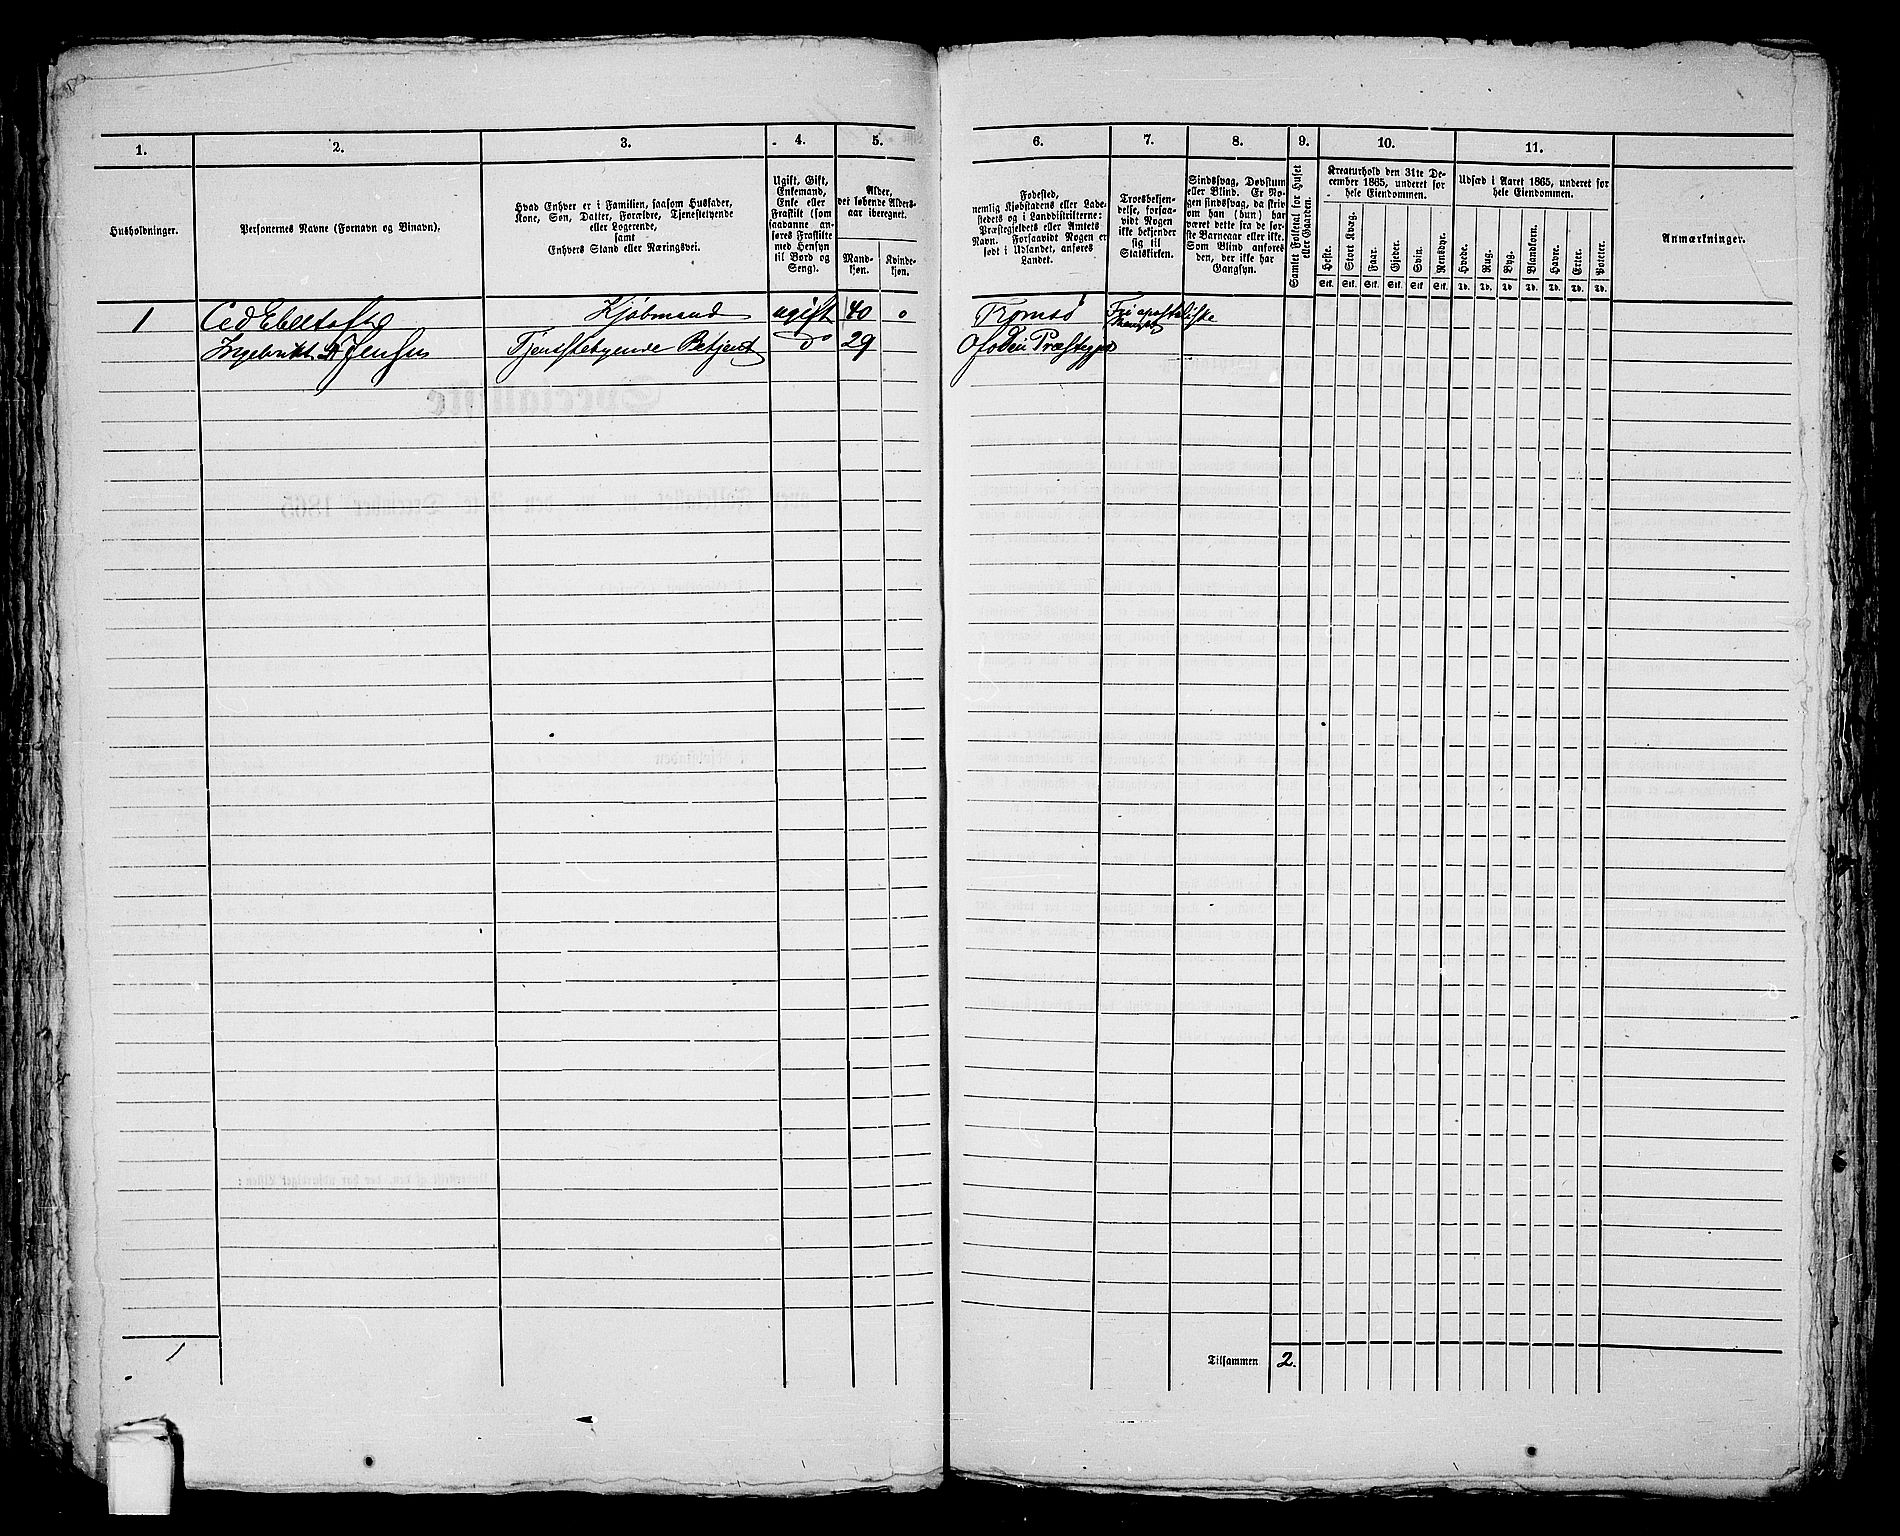 1. 2. 3. 4. 5. 6. 7. 8. 9. 10. 11.
Husholdninger.
Personernes Navne (Fornavn og Binavn).
Hvad Enhver er i Familien, saasom Husfader,
Kone, Søn, Datter, Forældre, Tjenestetyende
eller Logerende,
samt
Enhvers Stand eller Næringsvei.
Ugift, Gift,
Enkemand,
Enke eller
Fraskilt (som
saadanne an-
føres Fraskilte
med Hensyn
til Bord og
Seng).
Alder,
det løbende Alders-
aar iberegnet.
Mand-
kjøn.
Kvinde-
kjøn.
Fødested,
nemlig Kjøbstadens eller Lade-
stedets og i Landdistrikterne:
Præstegjeldets eller Amtets
Navn. Forsaavidt Nogen er
født i Udlandet, anføres
Landet.
Troesbekjen-
delse, forsaa-
vidt Nogen
ikke bekjender
sig til
Statskirken.
Sindssvag, Døvstum
eller Blind. Er No-
gen sindssvag, da skriv
om han (hun) har
været dette fra de før-
ste Barneaar eller ikke.
Som Blind anføres
den, der ikke har
Gangsyn.
Samlet Folketal for Huset
eller Gaarden.
Kreaturhold den 31te De-
cember 1865, underet for
hele Eiendommen.
Heste.
Stort Kvæg.
Faar.
Gjeder.
Svin.
Rensdyr.
Stk. Stk. Stk. Stk. Stk. Stk.
Udsæd i Aaret 1865, underet for
hele Eiendommen.
Hvede.
Rug.
Byg.
Blandkorn.
Havre.
Erter.
Poteter.
Td. Td. Td. Td. Td. Td. Td.
Anmærkninger.
1 Cad Ebeltoft Kjøbmand ugift 40 0 Tromsø Fri apostoliske
Menighed
Ingebrikt Jensen Tjenestetyende Betjent do 29 Ofoden Præstegjeld
1
Tilsammen 2.